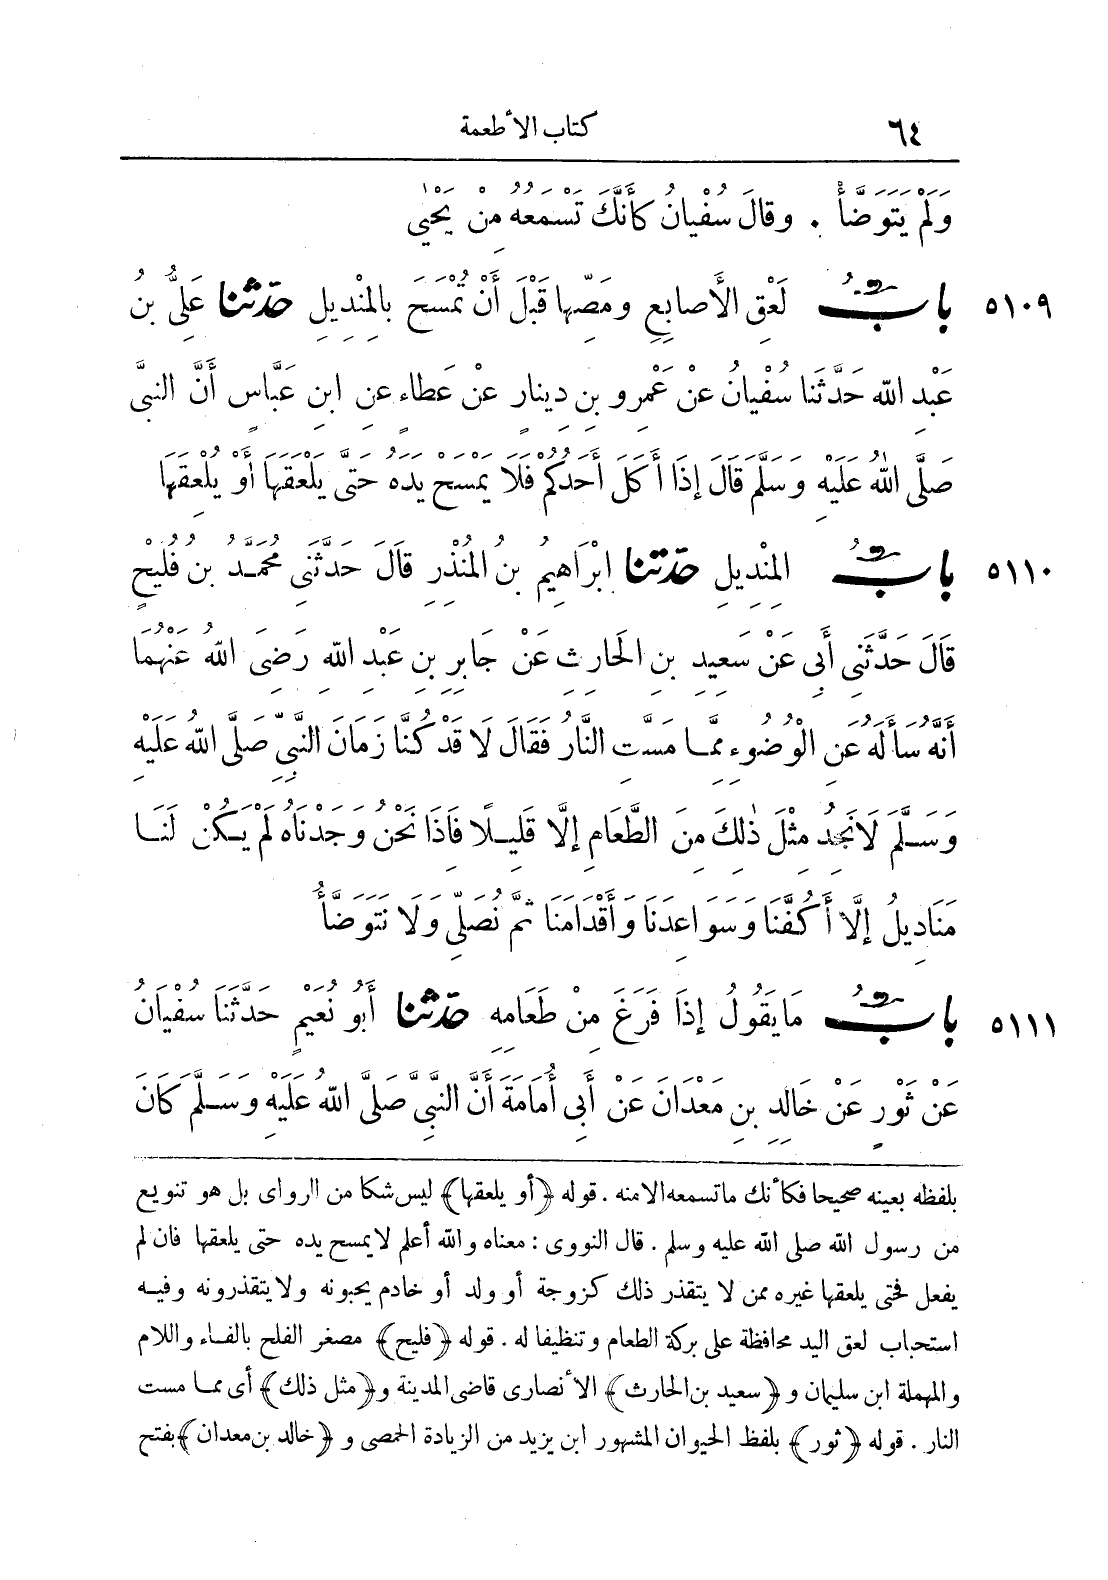 ٦٤ كتاب الأطعمة
وَلَمْ يَتَوَضَّأْ . وقالَ سُفْيانُ كَأَنَّكَ تَسْمَعُهُ مِنْ يَحْيٰي
٥١٠٩ بابُ لَعْقِ الأَصابِعِ ومَصِّها قَبْلَ أَنْ تُمْسَحَ بالمِنْدِيلِ حدّثنا عَلِيُّ بنُ
عَبْدِ اللهِ حَدَّثَنا سُفْيانُ عنْ عَمْرِو بنِ دِينارٍ عنْ عَطاءٍ عنِ ابنِ عَبَّاسٍ أَنَّ النبيَّ
صَلَّى اللهُ عَلَيْهِ وَسَلَّمَ قَالَ إذَا أَكَلَ أَحَدُكُمْ فَلَا يَمْسَحْ يَدَهُ حَتَّى يَلْعَقَهَا أَوْ يُلْعِقَهَا
٥١١٠ بابُ المِنْدِيلِ حدّثنا ابْرَاهِيمُ بنُ المُنْذِرِ قَالَ حَدَّثَنِى مُحَمَّدُ بنُ فُلَيْحٍ
قَالَ حَدَّثَنِى أَبِى عَنْ سَعِيدِ بنِ الحَارِثِ عَنْ جَابِرِ بنِ عَبْدِ اللهِ رَضِىَ اللهُ عَنْهُمَا
أَنَّهُ سَأَلَهُ عنِ الْوُضُوءِ مِمَّا مَسَّتِ النَّارُ فَقَالَ لَا قَدْ كُنَّا زَمَانَ النَّبِيِّ صَلَّى اللهُ عَلَيْهِ
وَسَلَّمَ لَا نَجِدُ مِثْلَ ذٰلِكَ مِنَ الطَّعَامِ إلَّا قَلِيلًا فَاذَا نَحْنُ وَجَدْنَاهُ لَمْ يَكُنْ لَنَا
مَنَادِيلُ إلَّا أَكُفَّنَا وَسَوَاعِدَنَا وَأَقْدَامَنَا ثُمَّ نُصَلِّى وَلَا نَتَوَضَّأُ
٥١١١ بابُ مَا يَقُولُ إذَا فَرَغَ مِنْ طَعَامِهِ حدّثنا أَبُو نُعَيْمٍ حَدَّثَنَا سُفْيَانُ
عَنْ ثَوْرٍ عَنْ خَالِدِ بنِ مَعْدَانَ عَنْ أَبِى أُمَامَةَ أَنَّ النَّبِىَّ صَلَّى اللهُ عَلَيْهِ وَسَلَّمَ كَانَ
بلفظه بعينه صحيحا فكأنك ما تسمعه الا منه . قوله ﴿أو يلعقها﴾ ليس شكا من الراوى بل هو تنويع
من رسول الله صلى الله عليه وسلم . قال النووى : معناه والله أعلم لا يمسح يده حتى يلعقها فان لم
يفعل فحتى يلعقها غيره ممن لا يتقذر ذلك كزوجة أو ولد أو خادم يحبونه ولا يتقذرونه وفيه
استحباب لعق اليد محافظة على بركة الطعام وتنظيفا له . قوله ﴿فليح﴾ مصغر الفلح بالفاء واللام
والمهملة ابن سليمان و﴿سعيد بن الحارث﴾ الأنصارى قاضى المدينة و﴿مثل ذلك﴾ أى مما مست
النار . قوله ﴿ثور﴾ بلفظ الحيوان المشهور ابن يزيد من الزيادة الحمصى و﴿خالد بن معدان﴾ بفتح